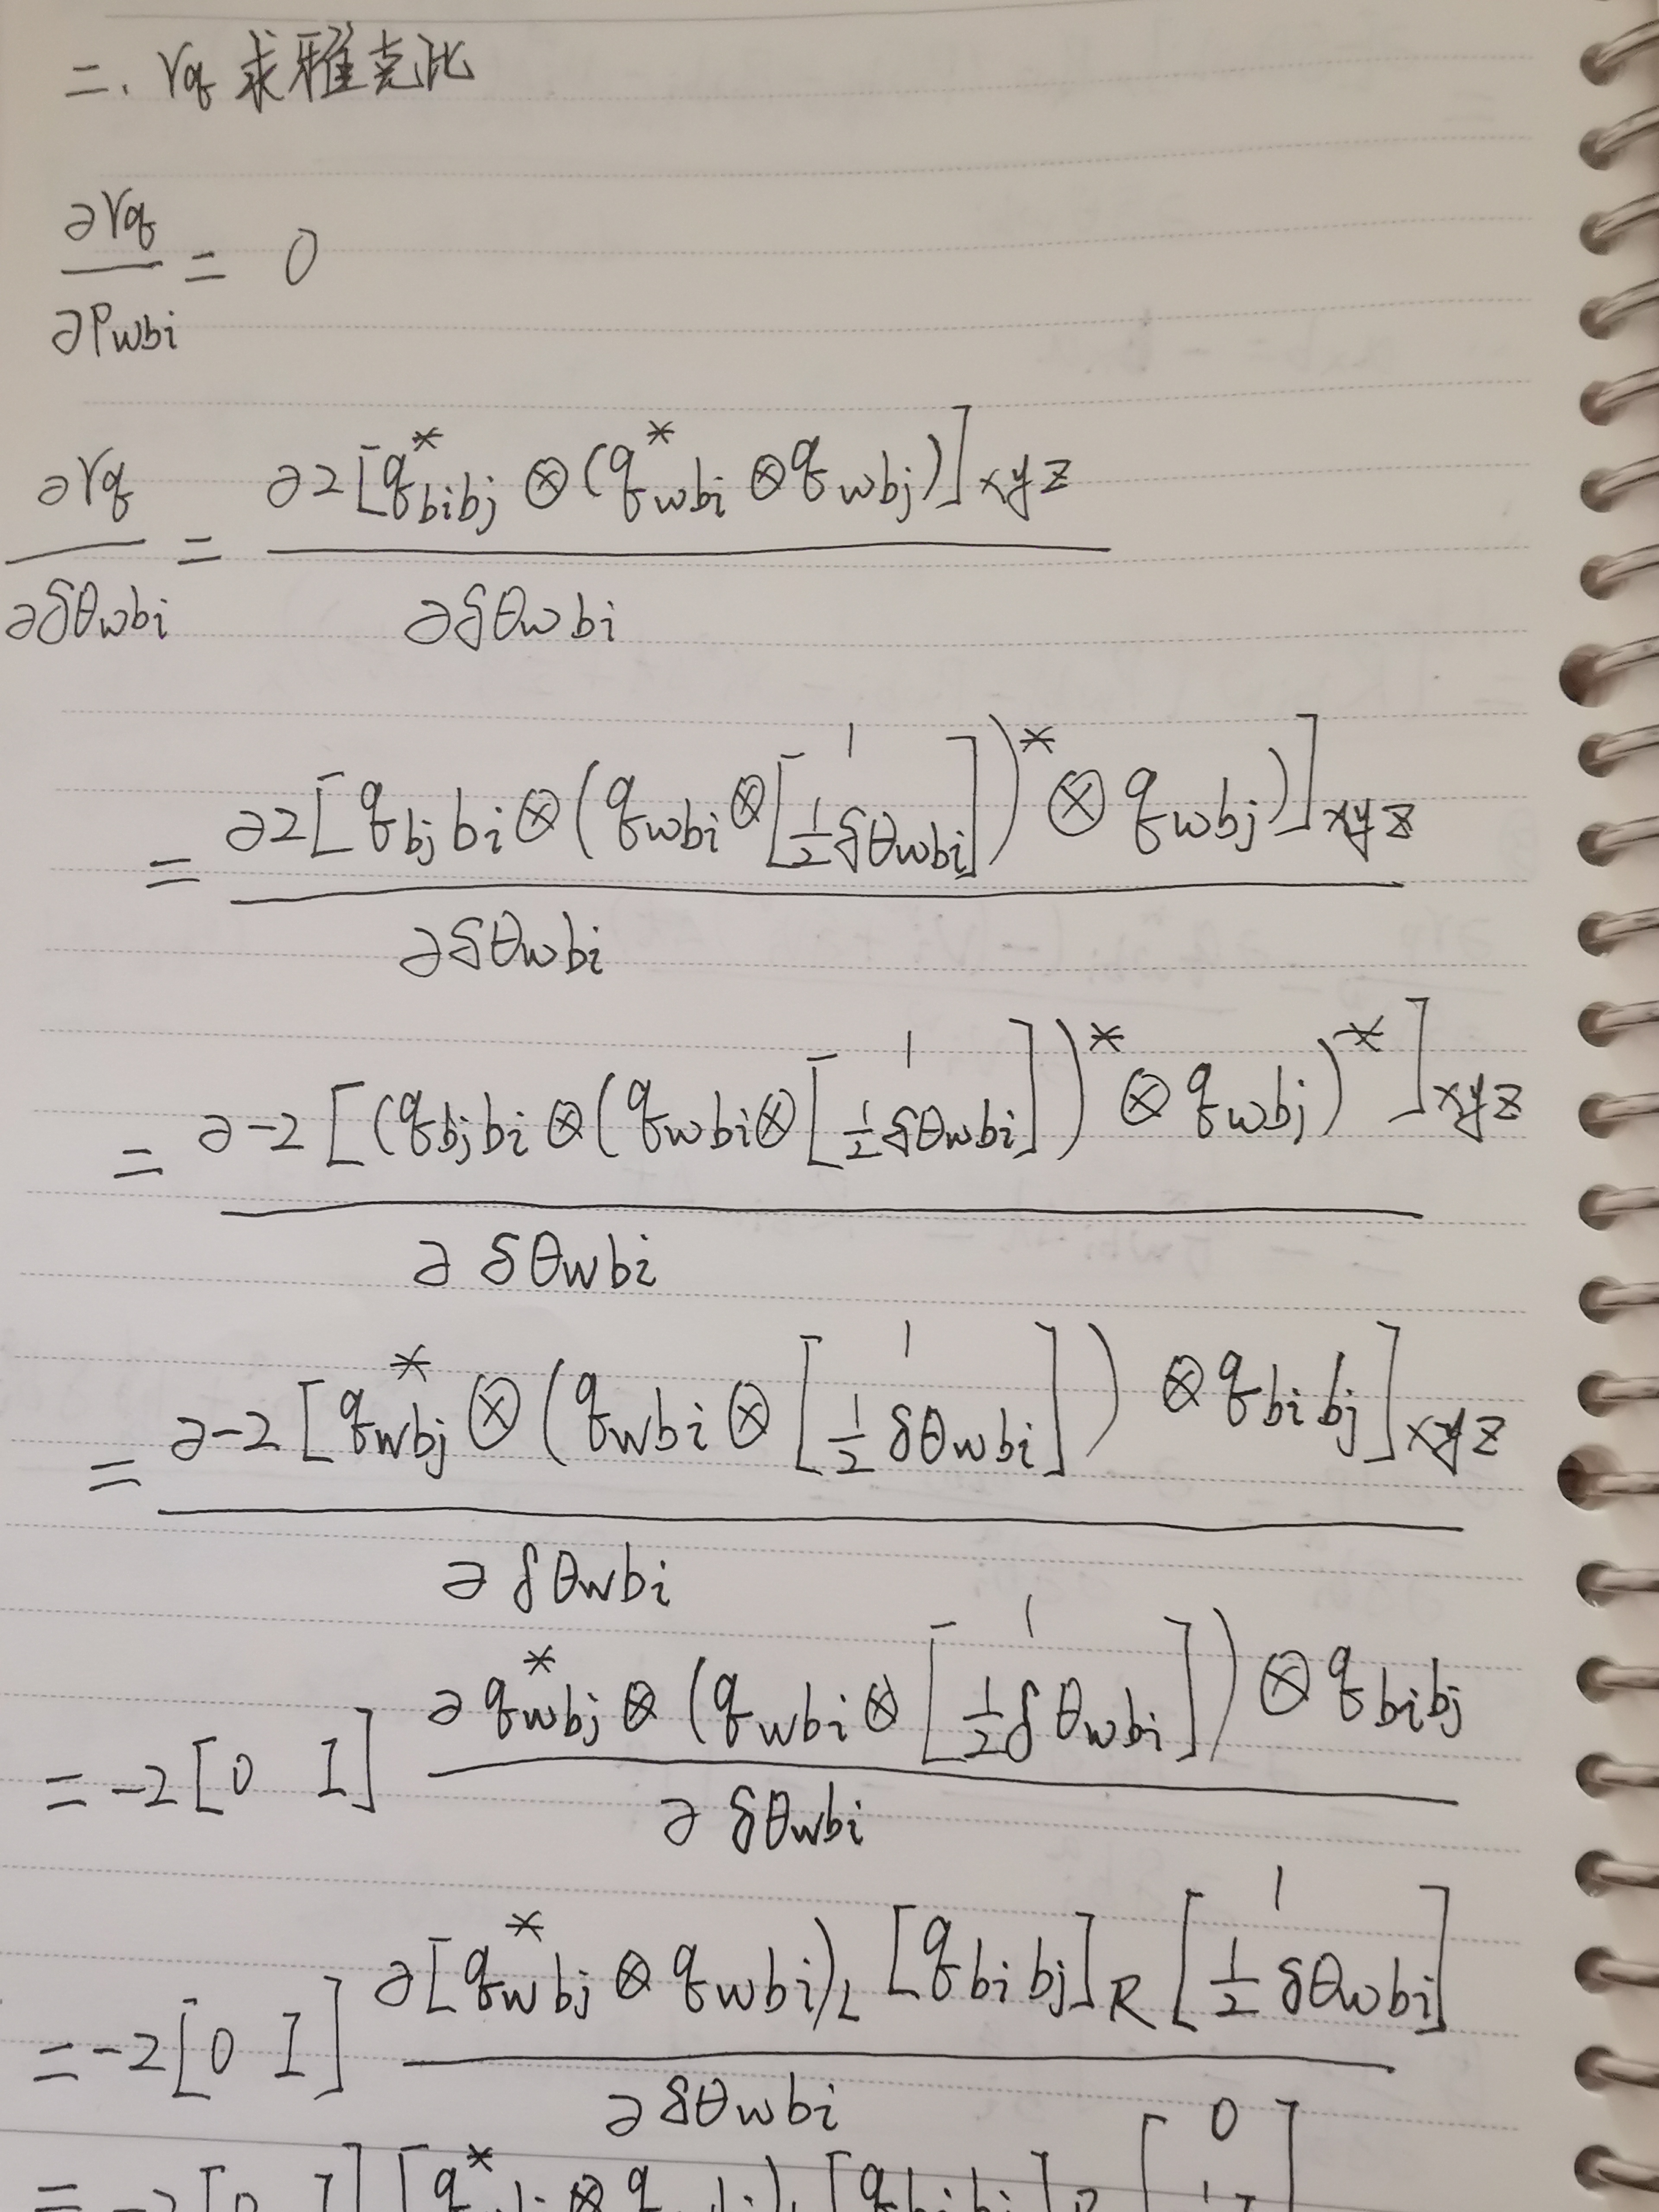 二、rq 求雅克比
∂rq/∂Pwbi = 0
∂rq/∂δθwbi = ∂2[q*bibj ⊗ (q*wbi ⊗ qwbj)]xyz / ∂δθwbi
= ∂2[qbjbi ⊗ (qwbi ⊗ [1; ½δθwbi])* ⊗ qwbj)]xyz / ∂δθwbi
= ∂-2[(qbjbi ⊗ (qwbi ⊗ [1; ½δθwbi])* ⊗ qwbj)*]xyz / ∂δθwbi
= ∂-2[q*wbj ⊗ (qwbi ⊗ [1; ½δθwbi]) ⊗ qbibj]xyz / ∂δθwbi
= -2[0 I] ∂q*wbj ⊗ (qwbi ⊗ [1; ½δθwbi]) ⊗ qbibj / ∂δθwbi
= -2[0 I] ∂[q*wbj ⊗ qwbi)L [qbibj]R [1; ½δθwbi] / ∂δθwbi